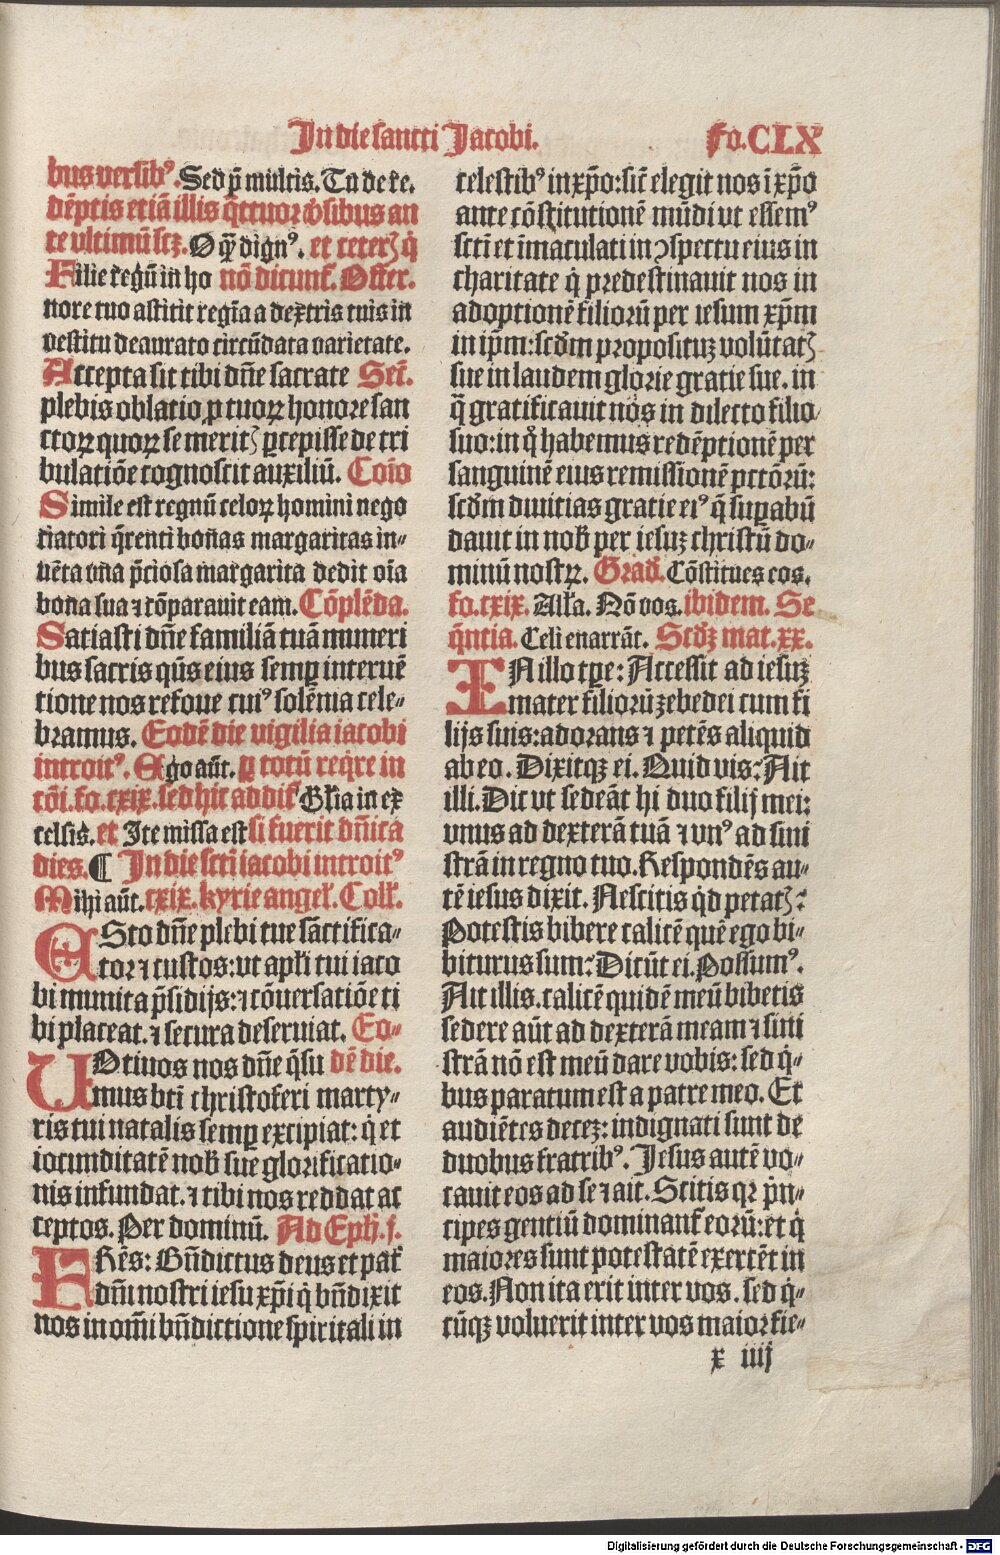 In die sancti Jacobi.
fo. CLX
bus versibꝰ. Sed p̄ multis. Tu de re.
dēptis etiā illis q̄ttuor v̓sibus an
te vltimū scꝫ. O q̄ȝ dignꝰ. et ceterȝ q̇
Filie regū in ho nō dicunt᷑. Offer.
nore tuo astitit regīa a dextris tuis in
vestitu deaurato circūdata varietate.
Accepta sit tibi dn̄e sacrate Secr̄.
plebis oblatio, ꝓ tuoꝝ honore san
ctoꝝ quoꝝ se meritȝ ꝑcepisse de tri
bulatiōe cognoscit auxiliū. Coīo
Simile est regnū celoꝝ homini nego
tiatori q̄renti bonas margaritas in⸗
vēta vna p̄ciosa margarita dedit oīa
bona sua ⁊ cōparauit eam. Cōplēda.
Satiasti dn̄e familiā tuā muneri
bus sacris qūs eius semꝑ interuē
tione nos refoue cuiꝰ solēnia cele⸗
bramus. Eodē die vigilia iacobi
introitꝰ. Ego aūt. ꝑ totū req̇re in
cōi. fo. cxix. sed hic addit᷑ Gl̓ia in ex
celsis. et Ite missa est si fuerit dn̄ica
dies. ¶ In die scti iacobi introitꝰ
Mihi aūt. cxix. kyrie angel̓. Coll̓.
ESto dn̄e plebi tue sāctifica⸗
tor ⁊ custos: vt apl̓i tui iaco
bi munita p̄sidijs: ⁊ cōuersatiōe ti
bi placeat. ⁊ secura deseruiat. Eo⸗
VOtiuos nos dn̄e q̄su dē die.
mus bti christoferi marty⸗
ris tui natalis semꝑ excipiat: q̇ et
iocunditatē nob̓ sue glorificatio⸗
nis infundat. ⁊ tibi nos reddat ac
ceptos. Per dominū. Ad Eph̓. j.
FRēs: Bn̄dictus deus et pat᷑
dn̄i nostri iesu xp̄i q̇ bn̄dixit
nos in om̄i bn̄dictione spiritali in
celestibꝰ in xp̄o: sic̄ elegit nos ī xp̄o
ante cōstitutionē mūdi vt essemꝰ
scti et īmaculati in ꝯspectu eius in
charitate q̇ predestinauit nos in
adoptionē filiorū per iesum xp̄m
in ip̄m: scd̓m propositūꝫ volūtatȝ
sue in laudem glorie gratie sue. in
q̄ gratificauit nos in dilecto filio
suo: in q̊ habemus redēptionē per
sanguinē eius remissionē pctōrū:
scd̓m diuitias gratie eiꝰ q̄ suꝑabū
dauit in nob̓ per iesuꝫ christū do⸗
minū nostꝝ. Grad̓. Cōstitues eos.
fo. cxix. All̓a. Nō vos. ibidem. Se
q̄ntia. Celi enarrāt. Scd̓ꝫ mat. xx.
IN illo tꝑe: Accessit ad iesuꝫ
mater filiorū zebedei cum fi
lijs suis: adorans ⁊ petēs aliquid
ab eo. Dixitqꝫ ei. Quid vis: Ait
illi. Dic vt sedeāt hi duo filij mei:
vnus ad dexterā tuā ⁊ vnꝰ ad sini
strā in regno tuo. Respondēs au⸗
tē iesus dixit. Nescitis q̇d petatȝ:
Potestis bibere calicē quē ego bi⸗
biturus sum: Dicūt ei. Possumꝰ.
Ait illis. calicē quidē meū bibetis
sedere aūt ad dexterā meam ⁊ sini
strā nō est meū dare vobis: sed q̇⸗
bus paratum est a patre meo. Et
audiētes decez: indignati sunt de
duobus fratribꝰ. Jesus autē vo⸗
cauit eos ad se ⁊ ait. Scitis qꝛ p̄n⸗
cipes gentiū dominant᷑ eorū: et q̇
maiores sunt potestatē exercēt in
eos. Non ita erit inter vos. sed q̇⸗
cūqꝫ voluerit inter vos maior fie⸗
x iiij
Digitalisierung gefördert durch die Deutsche Forschungsgemeinschaft - DFG